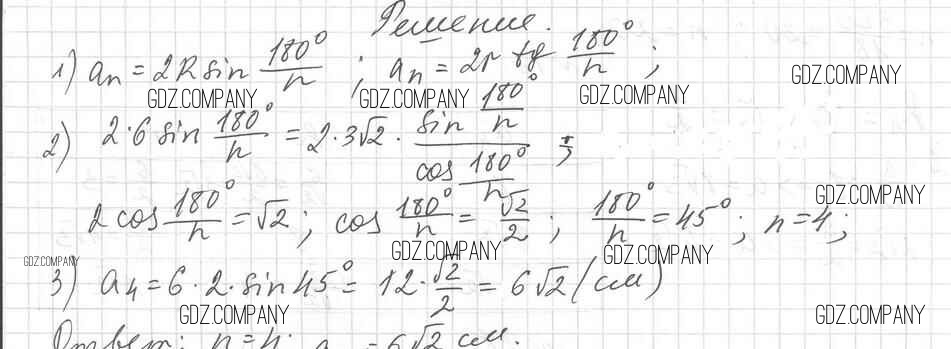 Решение.
1) aₙ = 2R sin 180°/n ; aₙ = 2r tg 180°/n ;
GDZ.COMPANY
GDZ.COMPANY GDZ.COMPANY GDZ.COMPANY
2) 2·6 sin 180°/n = 2·3√2 · (sin 180°/n)/(cos 180°/n) ;
GDZ.COMPANY
2 cos 180°/n = √2 ; cos 180°/n = √2/2 ; 180°/n = 45° ; n = 4 ;
GDZ.COMPANY GDZ.COMPANY GDZ.COMPANY
3) a₄ = 6·2·sin 45° = 12·√2/2 = 6√2 (см)
GDZ.COMPANY GDZ.COMPANY
Ответ: n = 4; = 6√2 см.